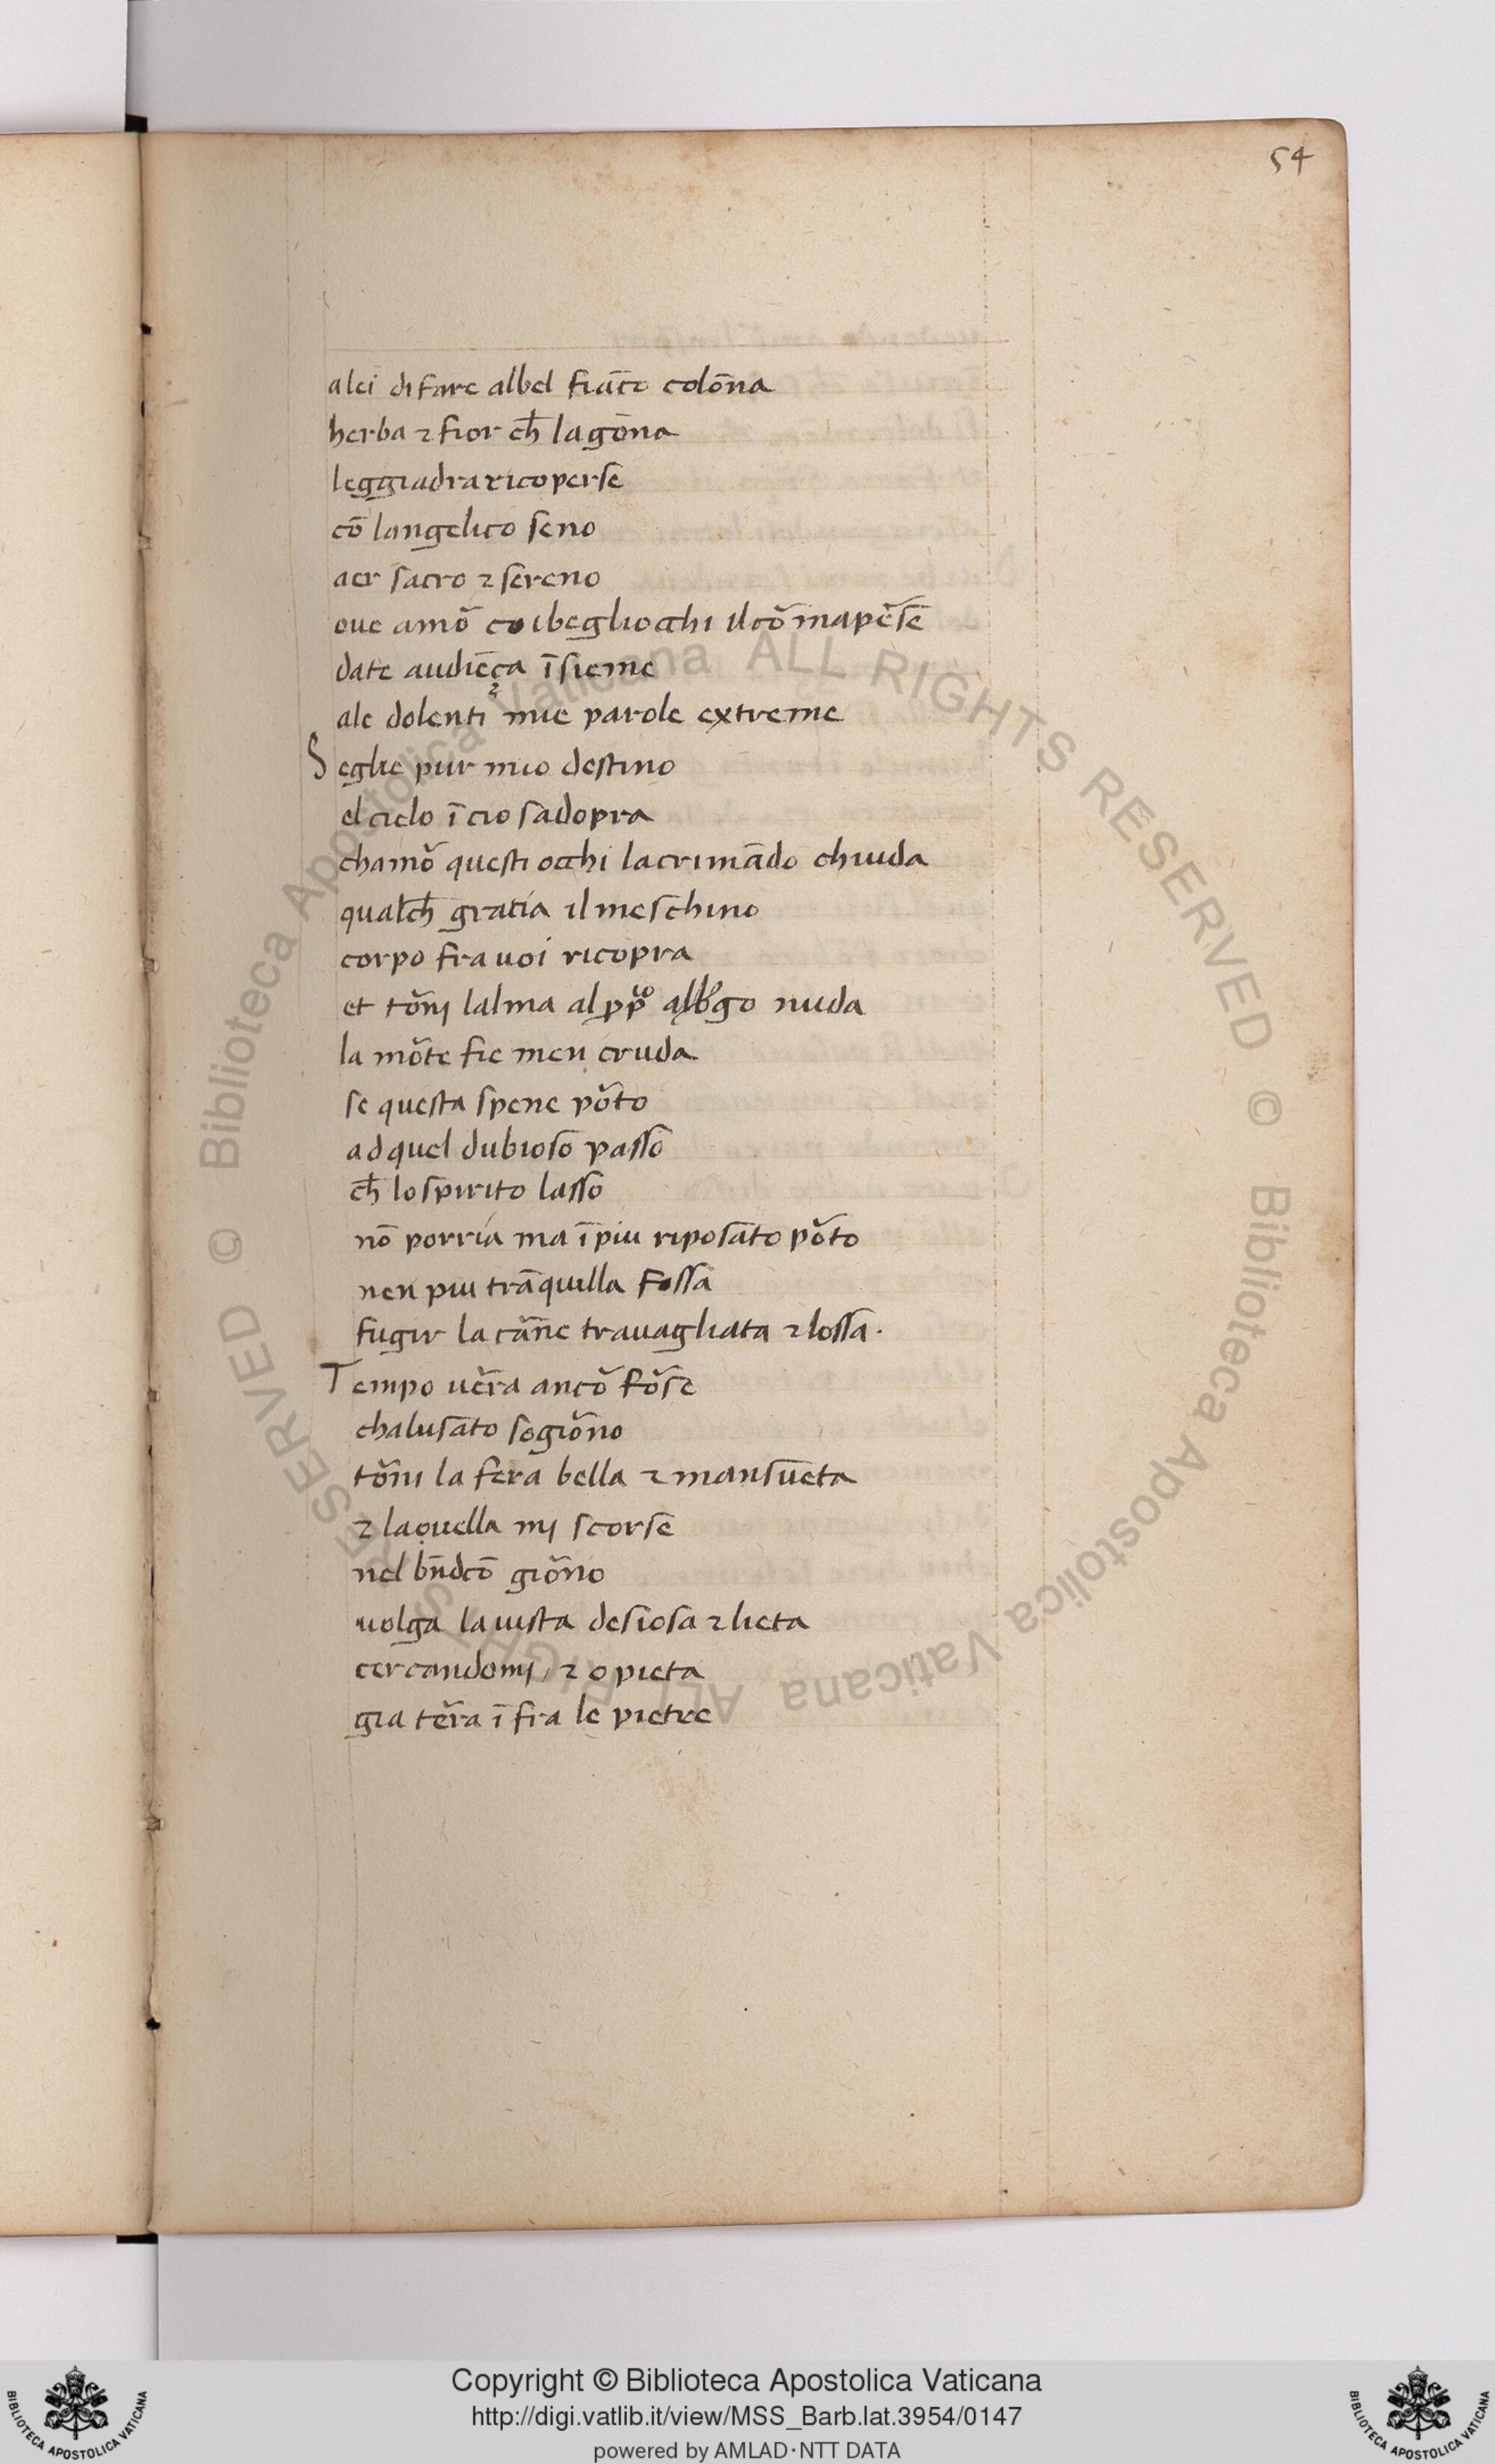 54
alei di fare albel fiāco colōna
herba ⁊ fior ch̄ lagōna
leggiadra ricoperse
cō langelico seno
aer sacro ⁊ sereno
oue amõ co ibegliocchi il cõ mapẽse
date audiēça īsieme
ale dolenti mie parole extreme
Seglie pur mio destino
el cielo ī cio sadopra
chamõ questi occhi lacrimādo chiuda
qualch̄ gratia il meschino
corpo fra uoi ricopra
et tõni lalma al ꝓpo albgo nuda
la mõte fie men cruda
se questa spene põto
ad quel dubioso passo
ch̄ lo spirito lasso
nō porria ma ī piu riposato põto
nen piu trāquilla fossa
fugir la cãne trauagliata ⁊ lossa.
Tempo uẽra ancõ fõse
chalusato sogiõno
tõni la fera bella ⁊ mansueta
⁊ laquella mi scorse
nel bn̄dcō giõno
uolga la uista desiosa ⁊ lieta
cercandomi ⁊ o pieta
gia tẽra ī fra le pietre
Biblioteca Apostolica Vaticana ALL RIGHTS RESERVED ©
Biblioteca Apostolica Vaticana ALL RIGHTS RESERVED ©
Copyright © Biblioteca Apostolica Vaticana
http://digi.vatlib.it/view/MSS_Barb.lat.3954/0147
powered by AMLAD·NTT DATA
BIBLIOTECA APOSTOLICA VATICANA
BIBLIOTECA APOSTOLICA VATICANA